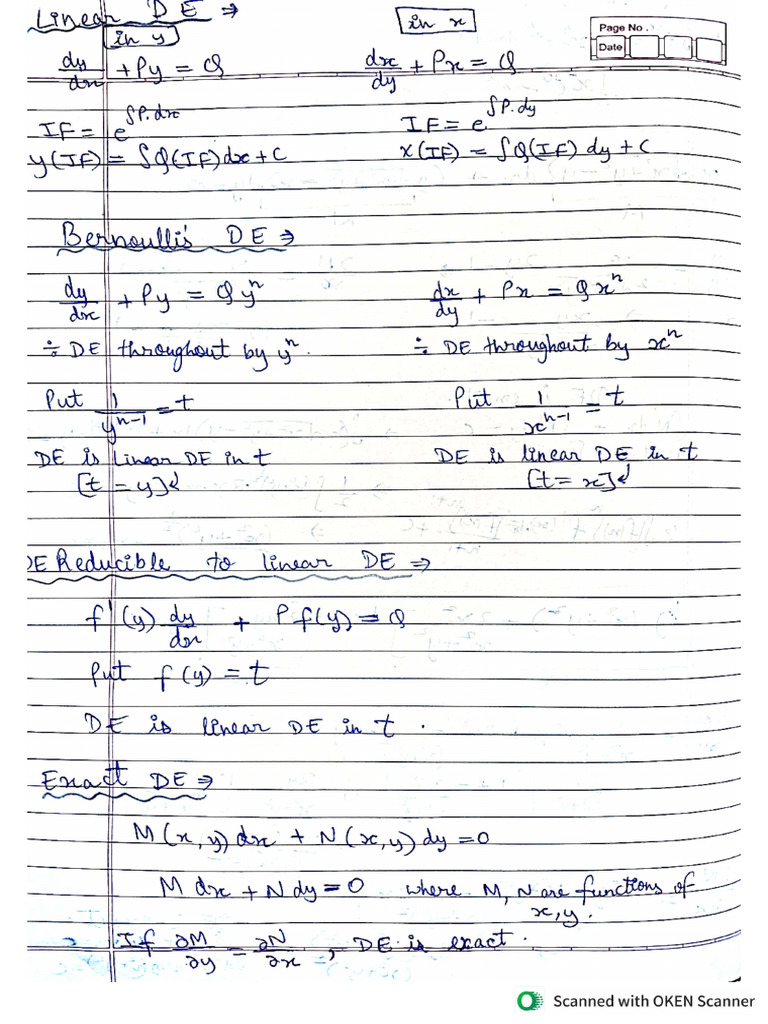 Linear DE ⇒
in y
in x
Page No.
Date
dy/dx + Py = Q
dx/dy + Px = Q
IF = e^∫P.dx
IF = e^∫P.dy
y(IF) = ∫Q(IF)dx + C
x(IF) = ∫Q(IF) dy + C
Bernoulli's DE ⇒
dy/dx + Py = Q yⁿ
dx/dy + Px = Q xⁿ
÷ DE throughout by yⁿ.
÷ DE throughout by xⁿ
Put 1/yⁿ⁻¹ = t
Put 1/xⁿ⁻¹ = t
DE is Linear DE in t
DE is linear DE in t
[t = y]
[t = x]
DE Reducible to linear DE ⇒
f'(y) dy/dx + P f(y) = Q
Put f(y) = t
DE is linear DE in t.
Exact DE ⇒
M(x, y) dx + N(x, y) dy = 0
M dx + N dy = 0 where M, N are functions of
x, y.
If ∂M/∂y = ∂N/∂x, DE is exact.
Scanned with OKEN Scanner